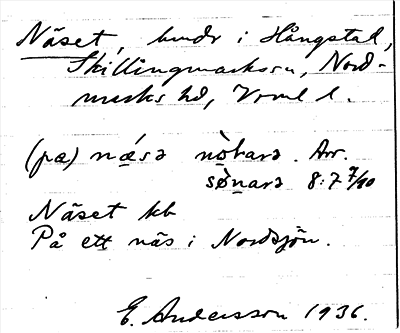 Näset, hmdr i Hångstad,
Skillingmarks sn, Nord-
marks hd, Vrml l.
(pæ) næ̀sə nò̱rarə. Arr.
sø̀narə 8:7 7/10
Näset kb
På ett näs i Nordsjön.
E. Andersson 1936.